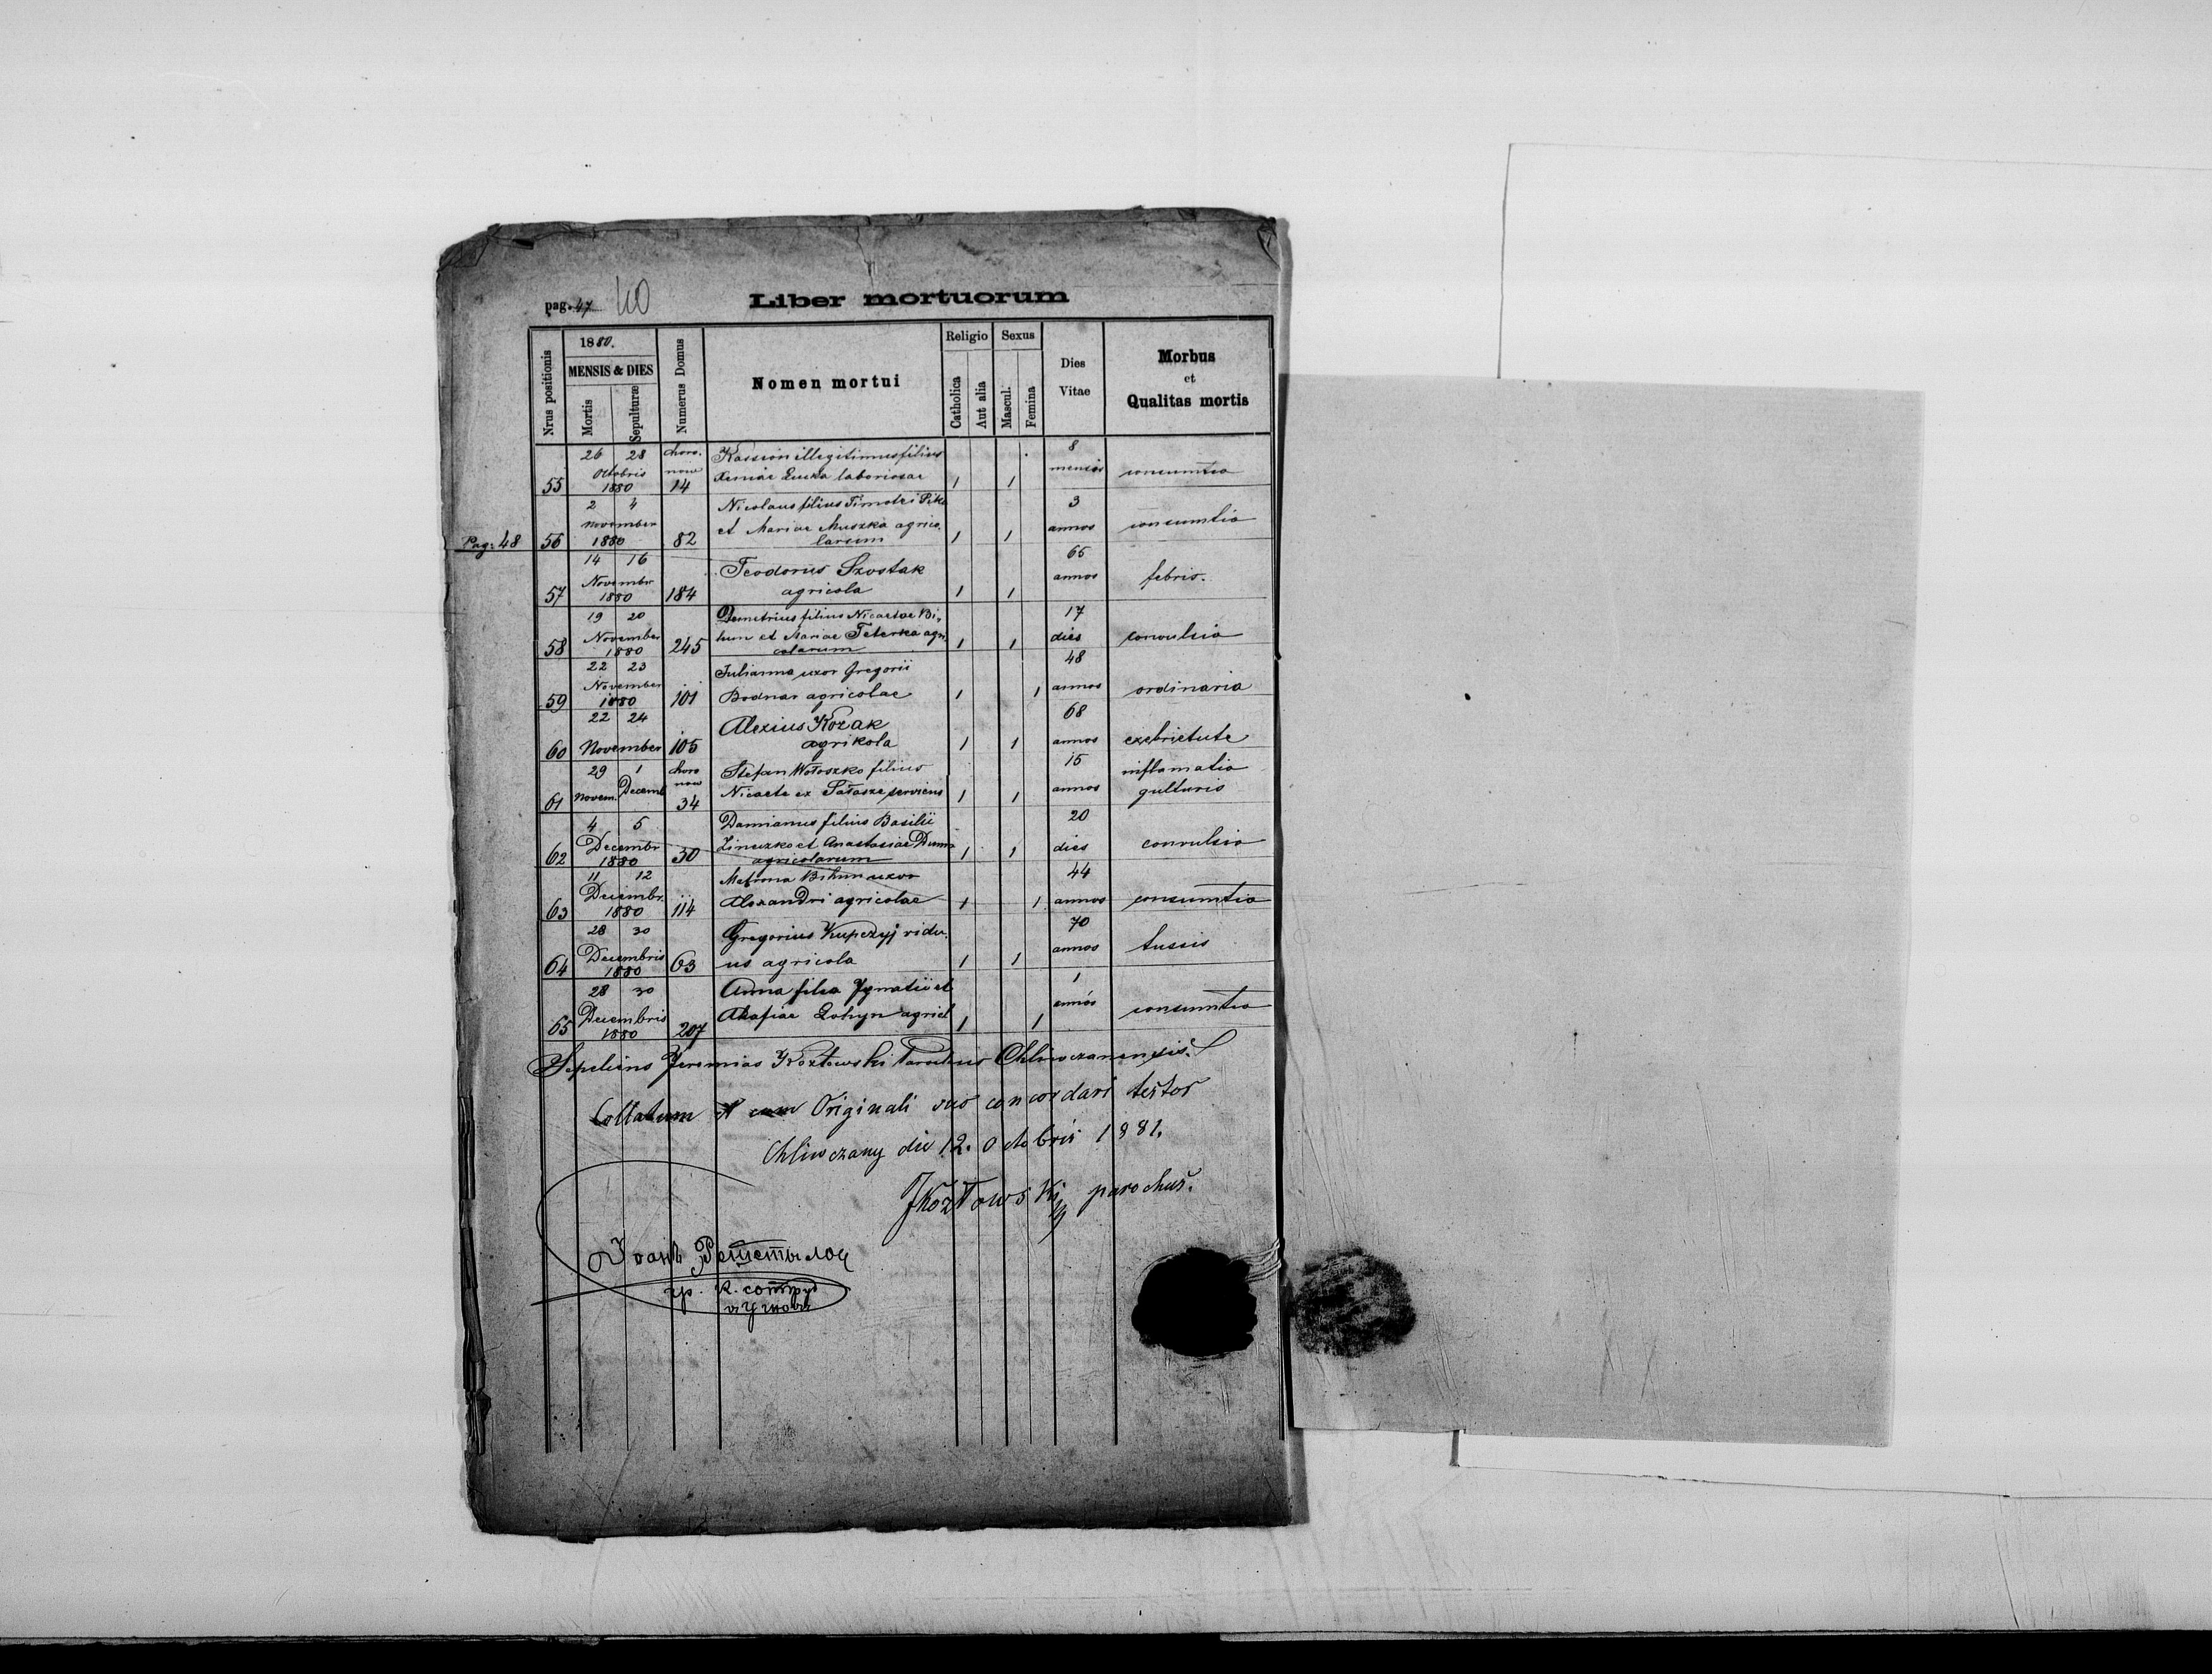 pag. 47 40
Liber mortuorum
Nrus positionis
1880.
MENSIS & DIES
Mortis
Sepulturæ
Numerus Domus
Nomen mortui
Religio
Catholica
Aut alia
Sexus
Mascul.
Femina
Dies
Vitae
Morbus
et
Qualitas mortis
26 28 choro. Kassion illegitimus filius 8
Octobris now mensis consumtio
55 1880 14 Xeniae Lucka laboriosae 1 1
2 4 Nicolaus filius Timotei Pik 3
november et Mariae Muszka agrico. annos consumtio
Pag: 48 56 1880 82 larum 1 1
14 16 Teodorus Szostak 65
November annos febris.
57 1880 184 agricola 1 1
19 20 Demetrius filius Nicaetae Bi, 17
November hun et Mariae Teterka agri dies convulsio
58 1880 245 colarum 1 1
22 23 Julianna uxor Gregorii 48
November annos ordinaria
59 1880 101 Bodnar agricolae 1 1
22 24 Alexius Kozak 68
60 November 105 agrikola 1 1 annos exebrietute
29 1 choro Stefan Wołoszko filius 15 inflamatio
61 Novem. Decemb now 34 Nicaete ex Sałasze serviens 1 1 annos gutturis
4 5 Damianus filius Basilii 20
Decembr Zinuzko et Anastasiae Duma dies convulsio
62 1880 30 agricolarum 1 1
11 12 Matrona Bihun uxor 44
Decembr.
63 1880 114 Alexandri agricolae 1 1 annos consumtio
28 30 Gregorius Kupczyj vidu. 70
Decembris annos tussis
64 1880 63 us agricola 1 1
28 30 Anna filia Ignatii et 1
Decembris annós consumtio
65 1880 207 Akafiae Lohyn agricl 1 1
Sepeliens Jeremias Kozłowski Parochus Chliwczanensis.
Collatum cum Originali suo concordari testor
Chliwczany die 12. Octobris 1881.
JKozłowski parochus.
Іоанъ Решетыло
гр. к. сотруд